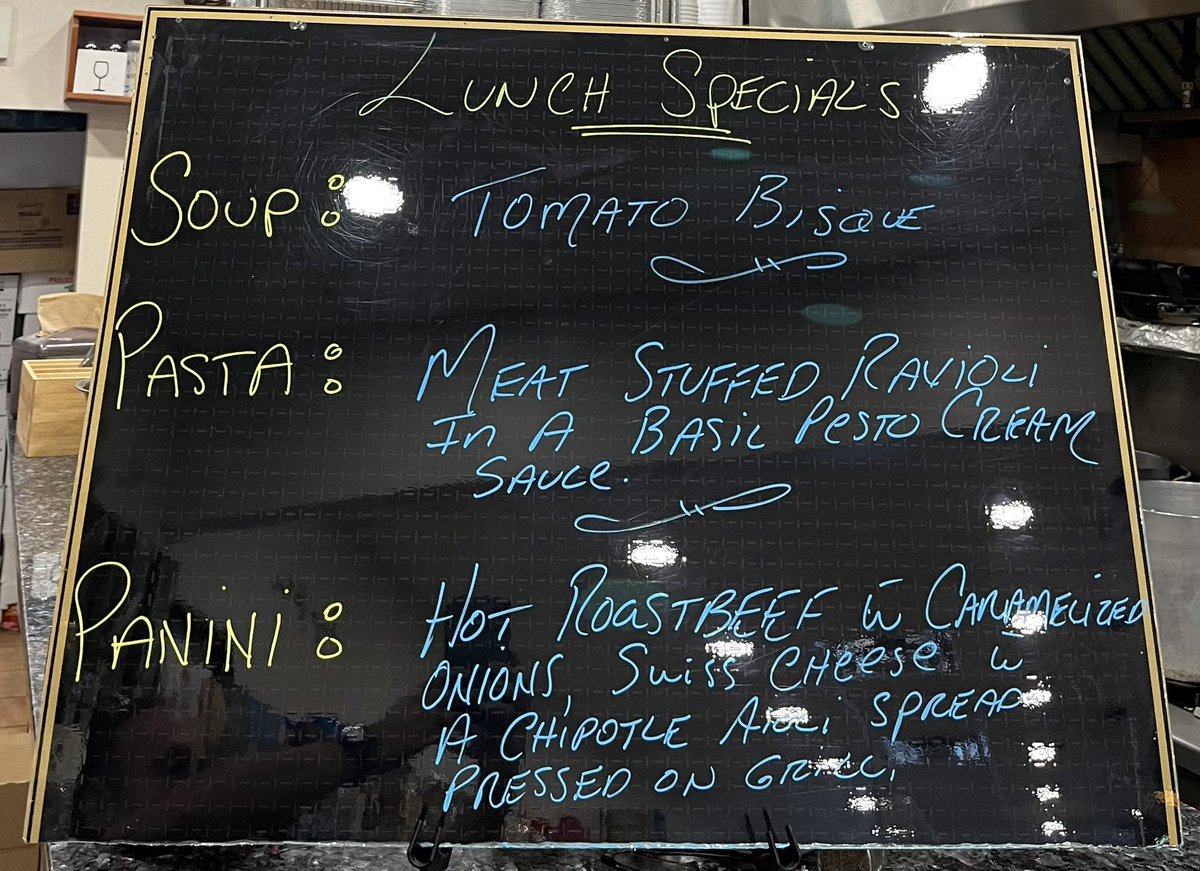 Lunch Specials
Soup: Tomato Bisque
Pasta: Meat Stuffed Ravioli
In A Basil Pesto Cream
Sauce.
Panini: Hot Roastbeef w Caramelized
Onions, Swiss Cheese w
A Chipotle Aioli Spread
Pressed on Grill.